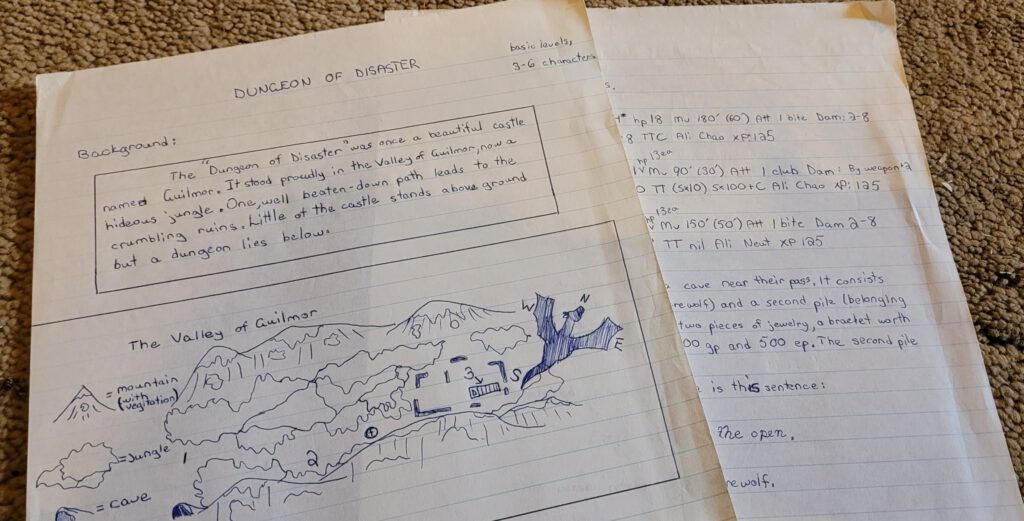 DUNGEON OF DISASTER
basic levels,
3-6 characters
Background:
The "Dungeon of Disaster" was once a beautiful castle
named Guilmor. It stood proudly in the Valley of Guilmor, now a
hideous jungle. One, well beaten-down path leads to the
crumbling ruins. Little of the castle stands above ground
but a dungeon lies below.
The Valley of Guilmor
= mountain
(with
vegitation)
= jungle
= cave
1
2
3
W
N
E
S
s.
hp 18 Mv 180' (60') Att 1 bite Dam: 2-8
8 TTC Ali Chao XP: 125
hp 13ea
Mv 90' (30') Att 1 club Dam: By weapon+2
TT (5x10) 5x100+C Ali Chao XP: 125
hp 13ea
Mv 150' (50') Att 1 bite Dam 2-8
TT nil Ali Neut XP 125
cave near their pass. It consists
rewolf) and a second pile (belonging
two pieces of jewelry, a bracket worth
00 gp and 500 ep. The second pile
is this sentence:
the open.
rewolf.